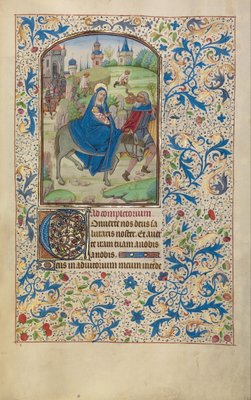 Ad completorium.
Converte nos deus sa
lutaris noster. Et aver
te iram tuam a nobis
a nobis.
Deus in adiutorium meum inten